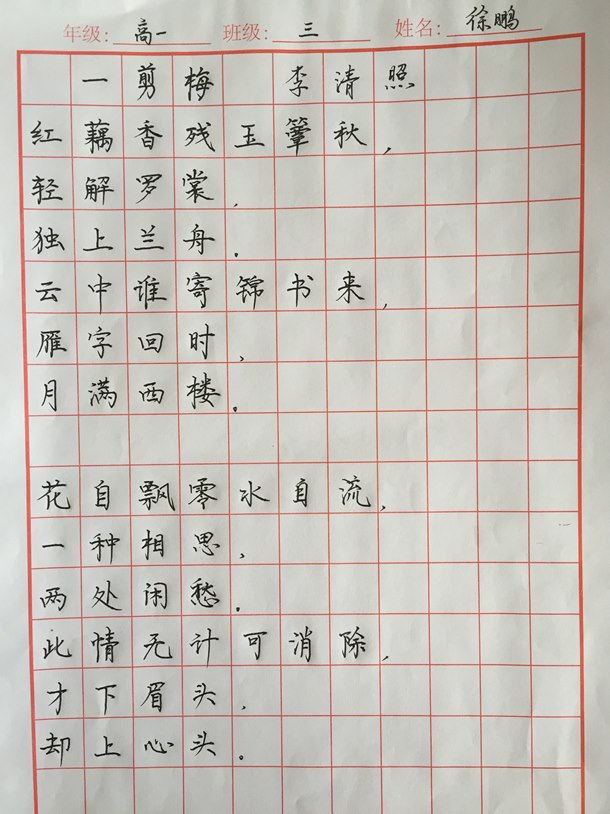 年级: 高一 班级: 三 姓名: 徐鹏
一剪梅 李清照
红藕香残玉簟秋,
轻解罗裳,
独上兰舟.
云中谁寄锦书来,
雁字回时,
月满西楼。
花自飘零水自流,
一种相思,
两处闲愁.
此情无计可消除,
才下眉头,
却上心头。